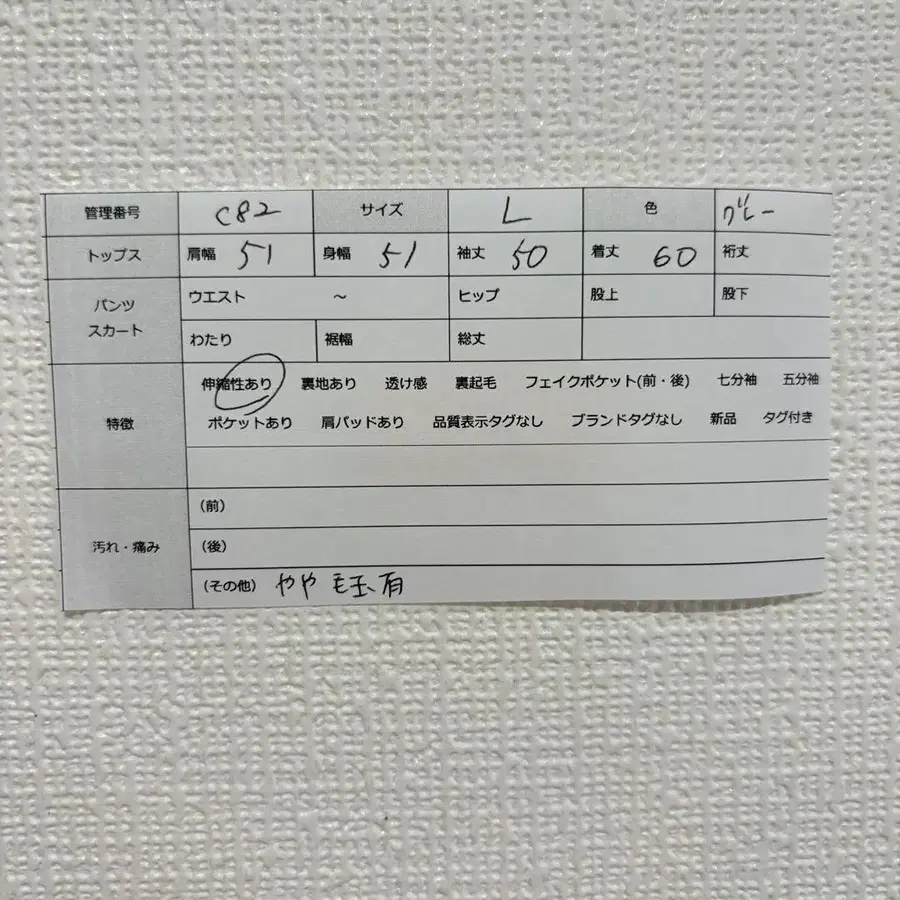 管理番号 C82 サイズ L 色 グレー
トップス 肩幅 51 身幅 51 袖丈 50 着丈 60 裄丈
パンツ ウエスト ～ ヒップ 股上 股下
スカート わたり 裾幅 総丈
伸縮性あり 裏地あり 透け感 裏起毛 フェイクポケット(前・後) 七分袖 五分袖
特徴 ポケットあり 肩パッドあり 品質表示タグなし ブランドタグなし 新品 タグ付き
(前)
汚れ・痛み (後)
(その他) やや毛玉有